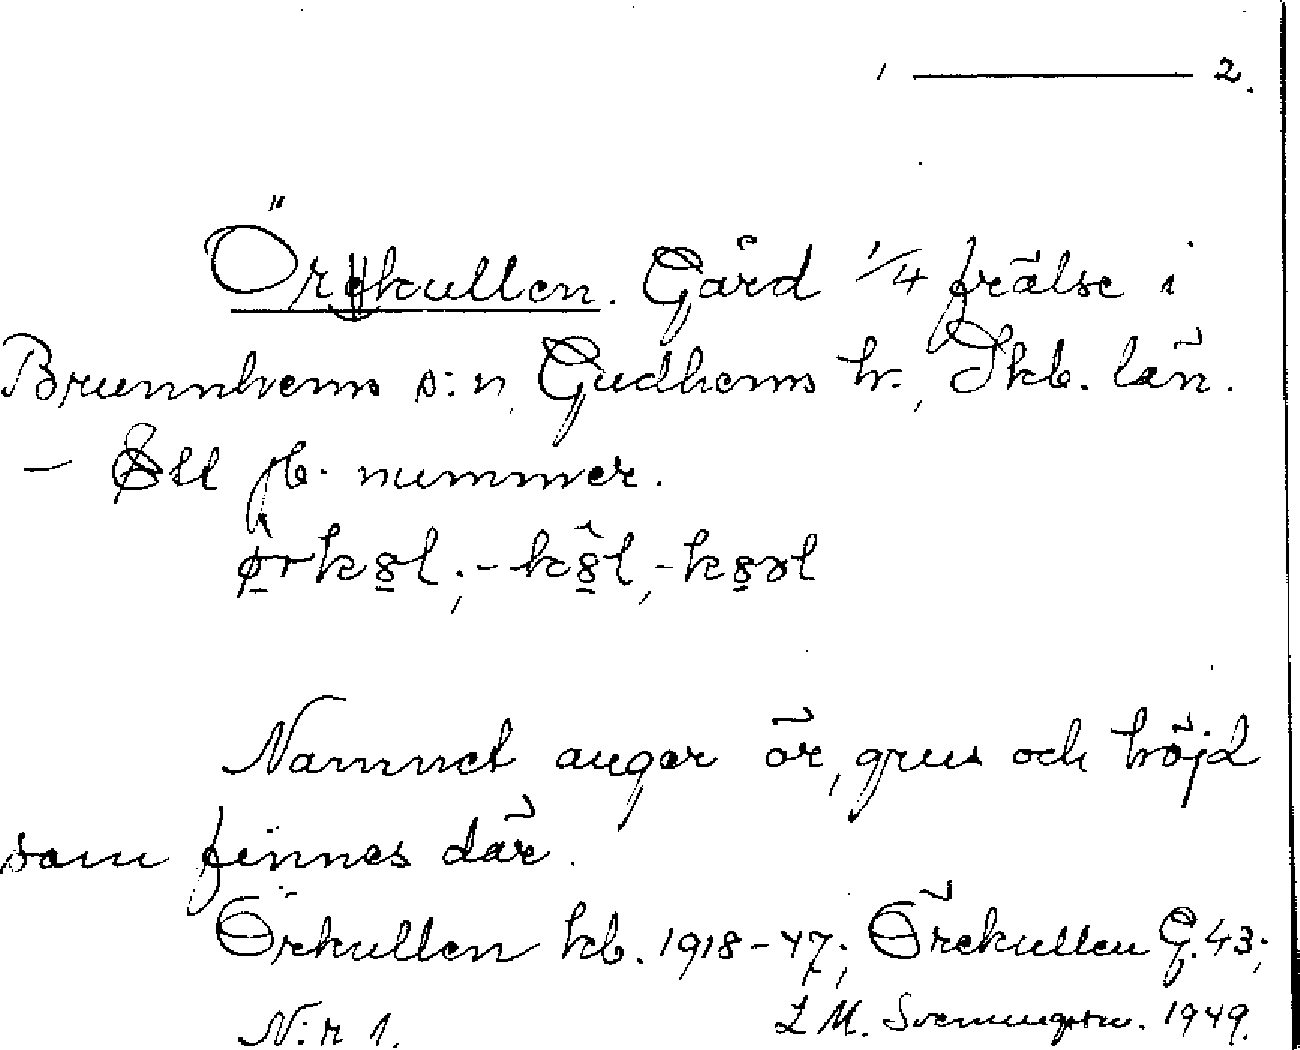 1 ——— 2.
Örekullen. Gård 1/4 frälse i
Brunnhems s:n, Gudhems hr., Skb. län.
– Ett jb. nummer.
Namnet anger ör, grus och höjd
som finnes där.
Örekullen kb. 1918-47; Örekullen G. 43;
N:r 1. L M. Svenungsson. 1949.